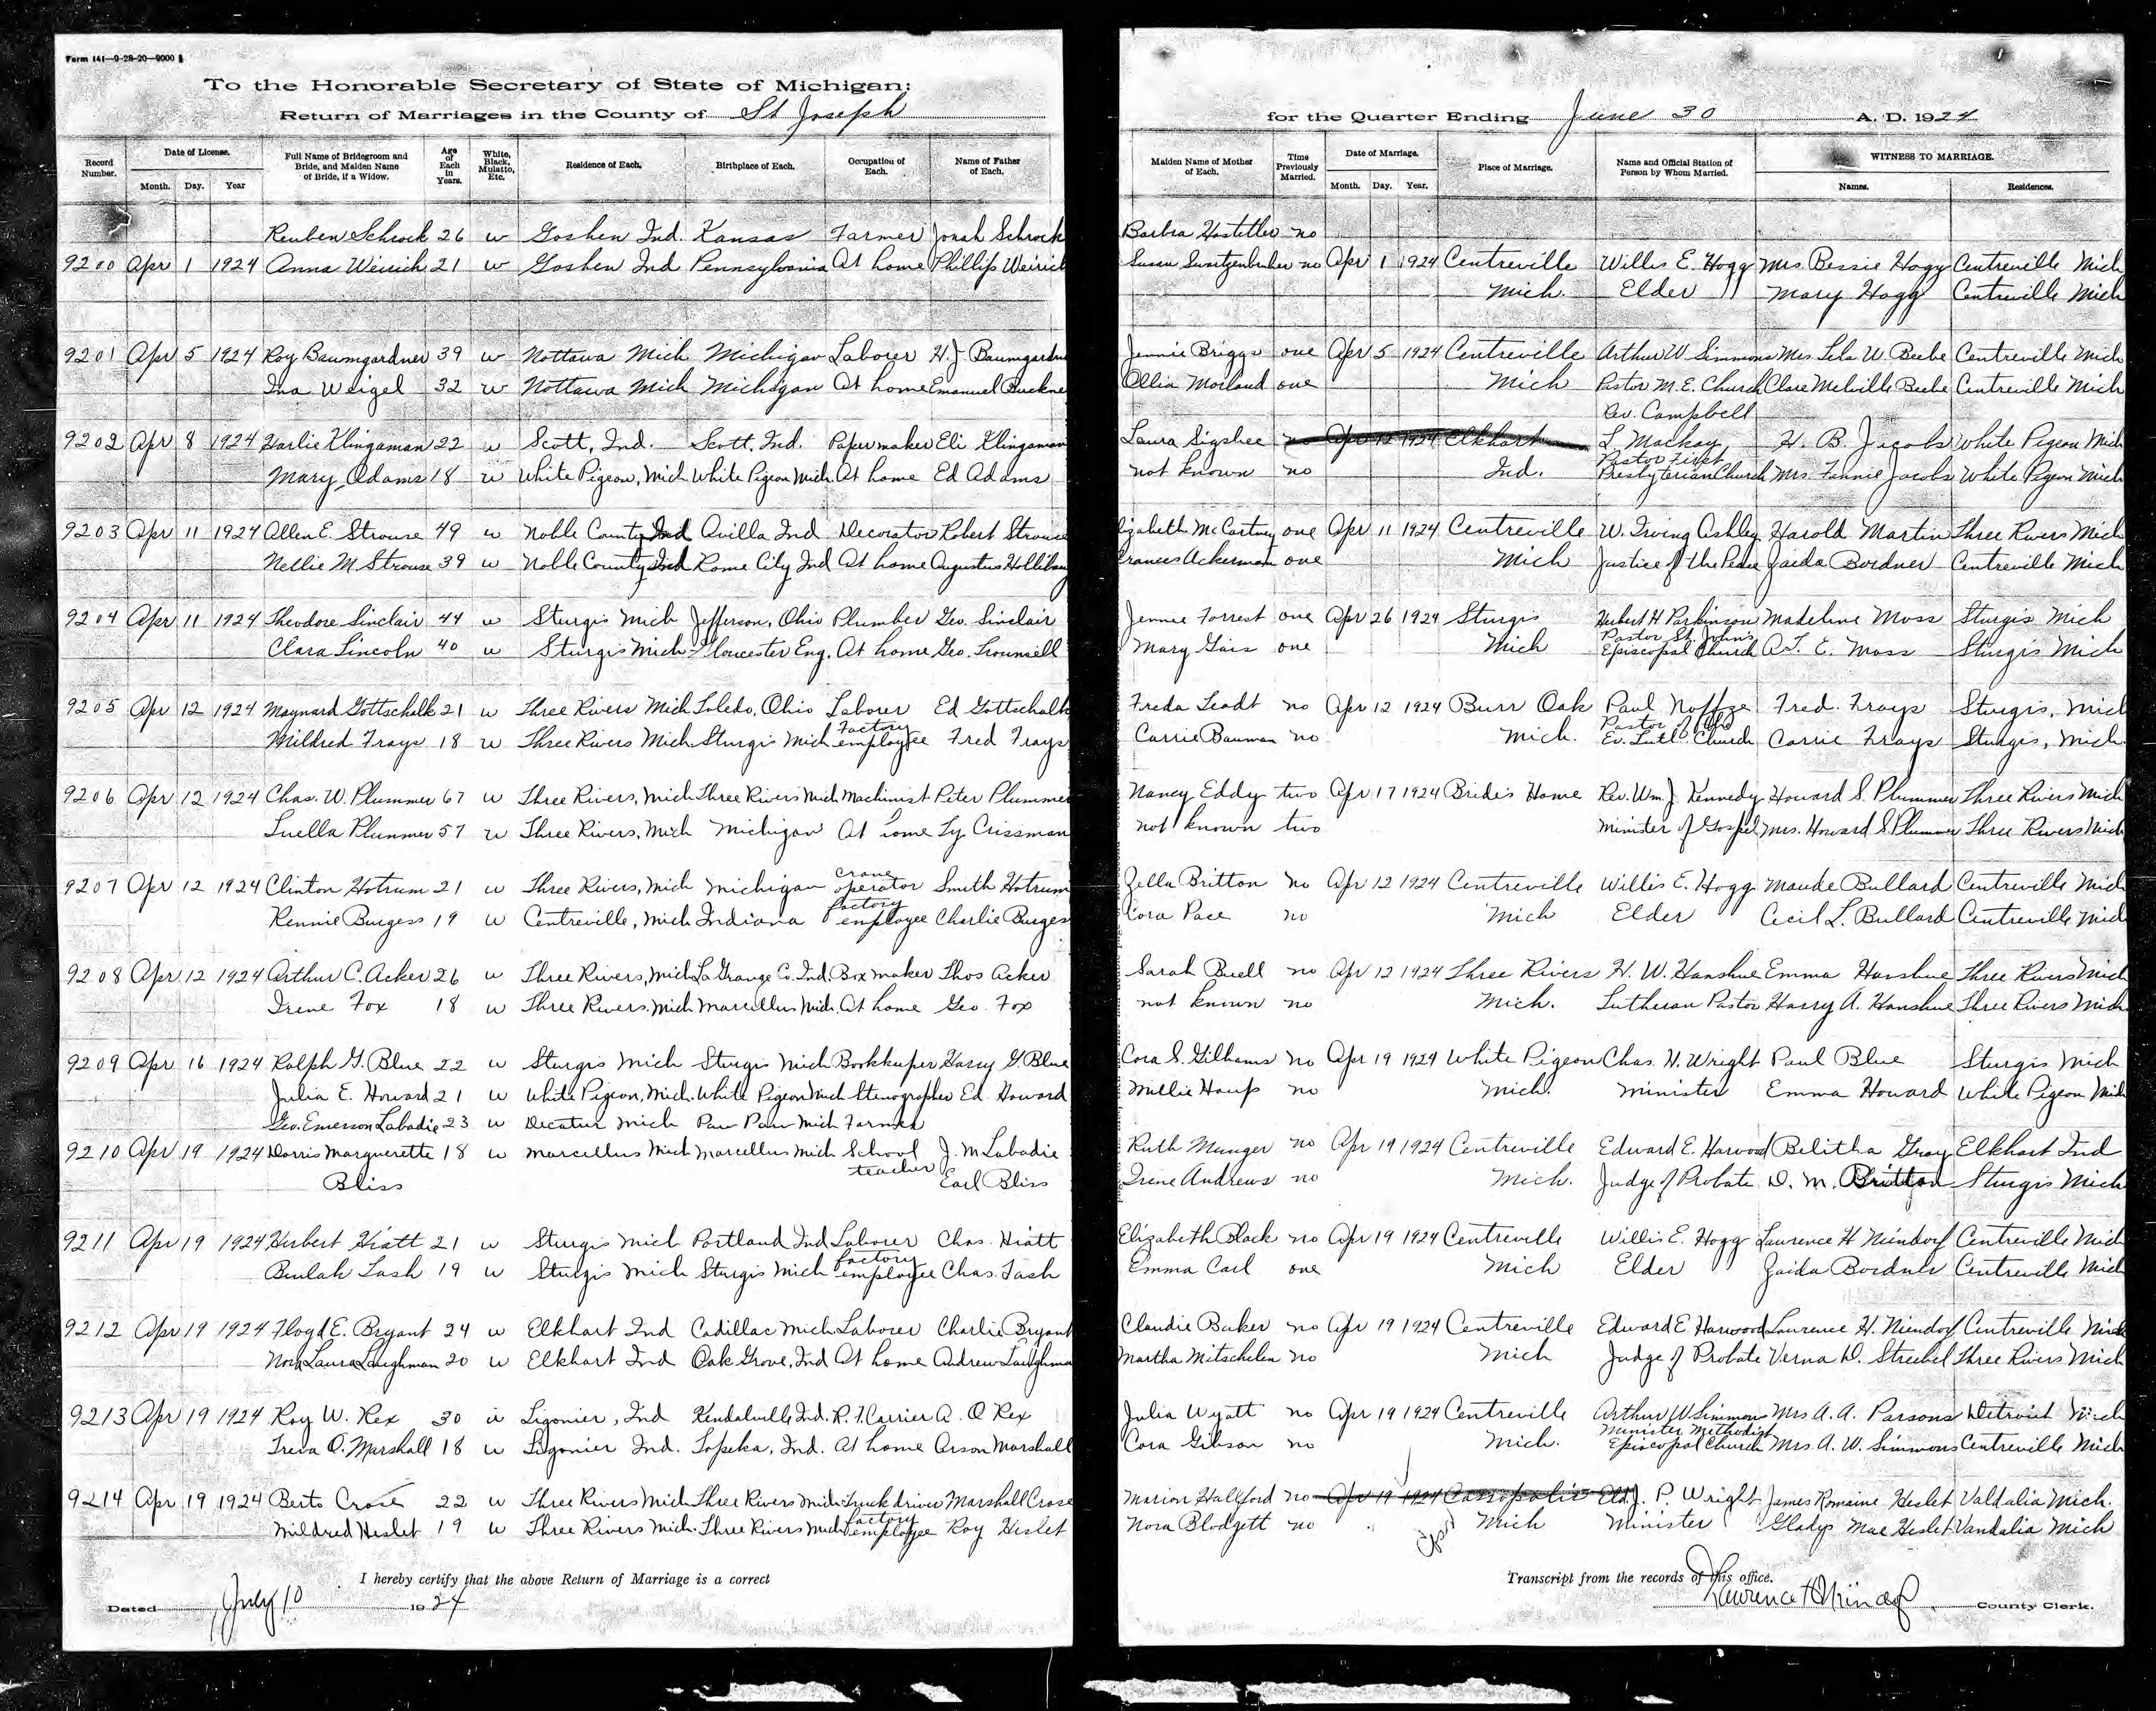 Form 141—9-28-20—9000
To the Honorable Secretary of State of Michigan:
Return of Marriages in the County of St Joseph
for the Quarter Ending June 30 A. D. 1924
Record Number. Date of License. Month. Day. Year Full Name of Bridegroom and Bride, and Maiden Name of Bride, if a Widow. Age of Each in Years. White, Black, Mulatto, Etc. Residence of Each. Birthplace of Each. Occupation of Each. Name of Father of Each.
Maiden Name of Mother of Each. Time Previously Married. Date of Marriage. Month. Day. Year. Place of Marriage. Name and Official Station of Person by Whom Married. WITNESS TO MARRIAGE. Names. Residences.
Reuben Schrock 26 w Goshen Ind. Kansas Farmer Jonah Schrock Barbra Hostetler no
9200 Apr 1 1924 Anna Weirich 21 w Goshen Ind Pennsylvania At home Phillip Weirich Susan no Apr 1 1924 Centreville Willis E. Hogg Mrs Bessie Hogg Centreville Mich
Mich. Elder Mary Hogg Centreville Mich
9201 Apr 5 1924 Roy Baumgardner 39 w Nottawa Mich Michigan Laborer H. J. Baumgardne Jennie Briggs one Apr 5 1924 Centreville Arthur W Simmons Mrs. Lela W. Beebe Centreville Mich
Ina Weigel 32 w Nottawa Mich Michigan At home Emanuel Buckne Ollia Moiland one Mich Pastor M. E. Church Clare Melville Beebe Centreville Mich
Rev. Campbell
9202 Apr 8 1924 Harlie Klingaman 22 w Scott, Ind. Scott, Ind. Papermaker Eli Klingaman Laura Sigsbee no Apr 12 1924 Elkhart L Mackay H. B. Jacobs White Pigeon Mich
Mary Adams 18 w White Pigeon, Mich White Pigeon Mich. At home Ed Adams not known no Ind. Pastor First Presbyterian Church Mrs. Fannie Jacobs White Pigeon Mich
9203 Apr 11 1924 Allen E. Strouse 49 w Noble County Ind Avilla Ind Decorator Robert Strouse lizabeth McCartney one Apr 11 1924 Centreville W. Irving Ashley Harold Martin Three Rivers Mich
Nellie M. Strouse 39 w Noble County Ind Rome City Ind At home Augustus Frances Ackerman one Mich Justice of the Peace Zaida Bordner Centreville Mich
9204 Apr 11 1924 Theodore Sinclair 44 w Sturgis Mich Jefferson, Ohio Plumber Geo. Sinclair Jennie Forrest one Apr 26 1924 Sturgis Hubert H Parkinson Madeline Moss Sturgis Mich
Clara Lincoln 40 w Sturgis Mich Gloucester Eng. At home Geo. Trounsell Mary Gais one Mich Pastor St. John's Episcopal Church A. T. E. Moss Sturgis Mich
9205 Apr 12 1924 Maynard Gottschalk 21 w Three Rivers Mich Toledo, Ohio Laborer Ed Gottschalk Freda Leadt no Apr 12 1924 Burr Oak Paul Noffze Fred. Frays Sturgis, Mich
Mildred Frays 18 w Three Rivers Mich Sturgis Mich Factory employee Fred Frays Carrie Bauman no Mich. Pastor of the Ev. Luth. Church Carrie Frays Sturgis, Mich.
9206 Apr 12 1924 Chas. W. Plummer 67 w Three Rivers, Mich Three Rivers Mich Machinist Peter Plumme Nancy Eddy two Apr 17 1924 Bride's Home Rev. Wm. J. Kennedy Howard S. Plummer Three Rivers Mich
Luella Plummer 57 w Three Rivers, Mich Michigan At home Ty Crissman not known two Minister of Gospel Mrs. Howard S. Plummer Three Rivers Mich
9207 Apr 12 1924 Clinton Hotrum 21 w Three Rivers, Mich Michigan Crane operator Smith Hotrum Zella Britton no Apr 12 1924 Centreville Willis E. Hogg Maude Bullard Centreville Mich
Rennie Burgess 19 w Centreville, Mich Indiana Factory employee Charlie Burges Cora Pace no Mich Elder Cecil L. Bullard Centreville Mich
9208 Apr 12 1924 Arthur C. Acker 26 w Three Rivers, Mich LaGrange Co. Ind. Box maker Thos Acker Sarah Buell no Apr 12 1924 Three Rivers H. W. Hanshue Emma Hanshue Three Rivers Mich
Irene Fox 18 w Three Rivers, Mich Marcellus Mich. At home Geo. Fox not known no Mich. Lutheran Pastor Harry A. Hanshue Three Rivers Mich
9209 Apr 16 1924 Ralph G. Blue 22 w Sturgis Mich Sturgis Mich Bookkeeper Harry G. Blue Cora S. Gilhams no Apr 19 1924 White Pigeon Chas. H. Wright Paul Blue Sturgis Mich
Julia E. Howard 21 w White Pigeon, Mich. White Pigeon Mich Stenographer Ed Howard Millie Haup no Mich. Minister Emma Howard White Pigeon Mich
Geo. Emerson Labadie 23 w Decatur Mich Paw Paw Mich Farmer
9210 Apr 19 1924 Dorris Marguerette 18 w Marcellus Mich Marcellus Mich School J. M Labadie Ruth Munger no Apr 19 1924 Centreville Edward E. Harwood Belitha Gray Elkhart Ind
Bliss teacher Earl Bliss Irene Andrews no Mich. Judge of Probate D. M. Britton Sturgis Mich
9211 Apr 19 1924 Herbert Hiatt 21 w Sturgis Mich Portland Ind Laborer Chas. Hiatt Elizabeth Black no Apr 19 1924 Centreville Willis E. Hogg Lawrence H Niendorf Centreville Mich
Beulah Lash 19 w Sturgis Mich Sturgis Mich Factory employee Chas. Lash Emma Carl one Mich Elder Zaida Bordner Centreville Mich
9212 Apr 19 1924 Floyd E. Bryant 24 w Elkhart Ind Cadillac Mich Laborer Charlie Bryant Claudie Baker no Apr 19 1924 Centreville Edward E Harwood Lawrence H. Niendorf Centreville Mich
Nora Laura Laughman 20 w Elkhart Ind Oak Grove, Ind At home Andrew Laughma Martha Mitschelen no Mich Judge of Probate Verna D. Streibel Three Rivers Mich
9213 Apr 19 1924 Roy W. Rex 30 w Ligonier, Ind Kendalville Ind. R. F. Carrier A. O Rex Julia Wyatt no Apr 19 1924 Centreville Arthur W Simmons Mrs A. A. Parsons Detroit Mich
Treva O. Marshall 18 w Ligonier Ind. Topeka, Ind. At home Orson Marshall Cora Gibson no Mich. Minister Methodist Episcopal Church Mrs. A. W. Simmons Centreville Mich
9214 Apr 19 1924 Berto Crose 22 w Three Rivers Mich Three Rivers Mich Truck driver Marshall Crose Marion Hallford no Apr 19 1924 Cassopolis Eld. J. P. Wright James Romaine Heslet Valdalia Mich.
Mildred Heslet 19 w Three Rivers Mich. Three Rivers Mich Factory employee Roy Heslet Nora Blodgett no Mich Minister Gladys Mae Heslet Vandalia Mich
I hereby certify that the above Return of Marriage is a correct Transcript from the records of this office.
Dated July 10 1924
Lawrence H Niendorf County Clerk.